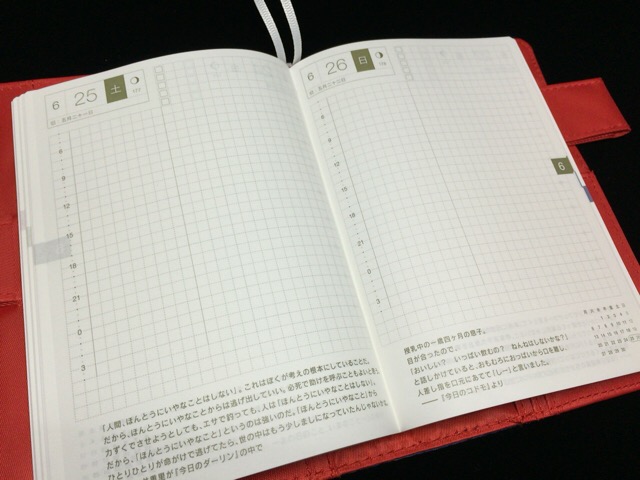 6 25 土
8
12
15
18
21
0
3
「人間、ほんとうにいやなことはしない」。これはぼくが考えの根本にしていることだ。
だから、ほんとうにいやなことからは逃げ出していい。必死で助けを呼ぶこともよいと思
力ずくでさせようとしても、エサで釣っても、人は「ほんとうにいやなことはしない」。
だから、「ほんとうにいやなこと」というのは強いのだ。「ほんとうにいやなこと」から
ひとりひとりが命がけで逃げてたら、世の中はもう少しましになっていたんじゃないか
『今日のダーリン』の中で
6 26 日
8
12
15
18
21
0
3
6
授乳中の一歳四ヶ月の息子。
目が合ったので、
「おいしい? いっぱい飲むの? ねんねはしないかな?」
と話しかけていると、おもむろにおっぱいから口を離し、
人差し指を口元にあてて「しー」と言いました。
——『今日のコドモ』より